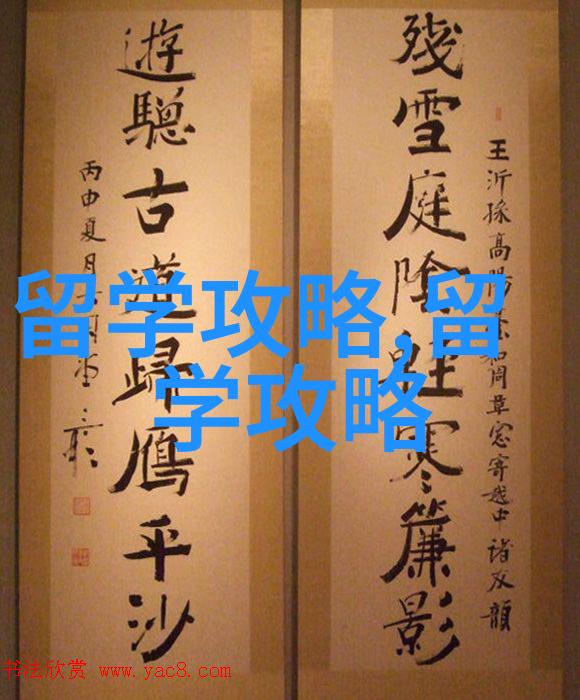 殘雪庭陰輕寒簾影
王沂孫高陽臺和周草窓寄越中諸友韻
遊驄古道歸鴈平沙
丙申夏月
留学攻略,留
学攻略
书法欣赏 www.yac8.com